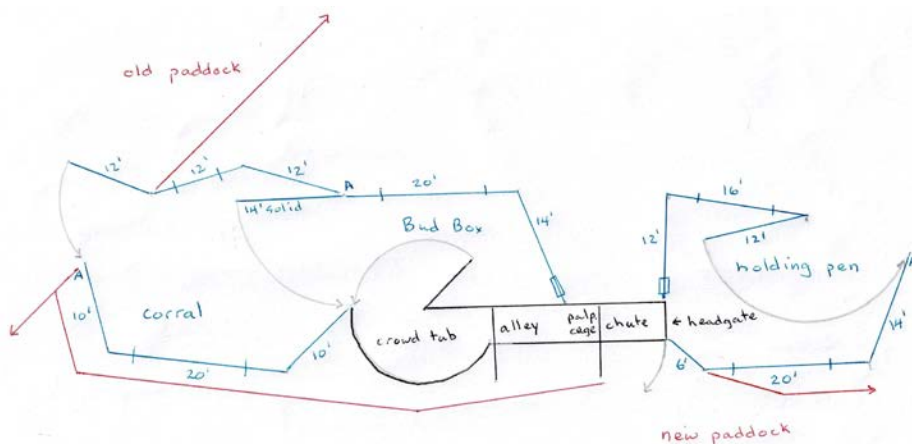 old paddock
12'
12'
12'
A
20'
14' solid
Bud Box
14'
16'
12'
12'
holding pen
A
10'
corral
10'
20'
crowd tub
alley
palp
cage
chute
← headgate
14'
6'
20'
new paddock